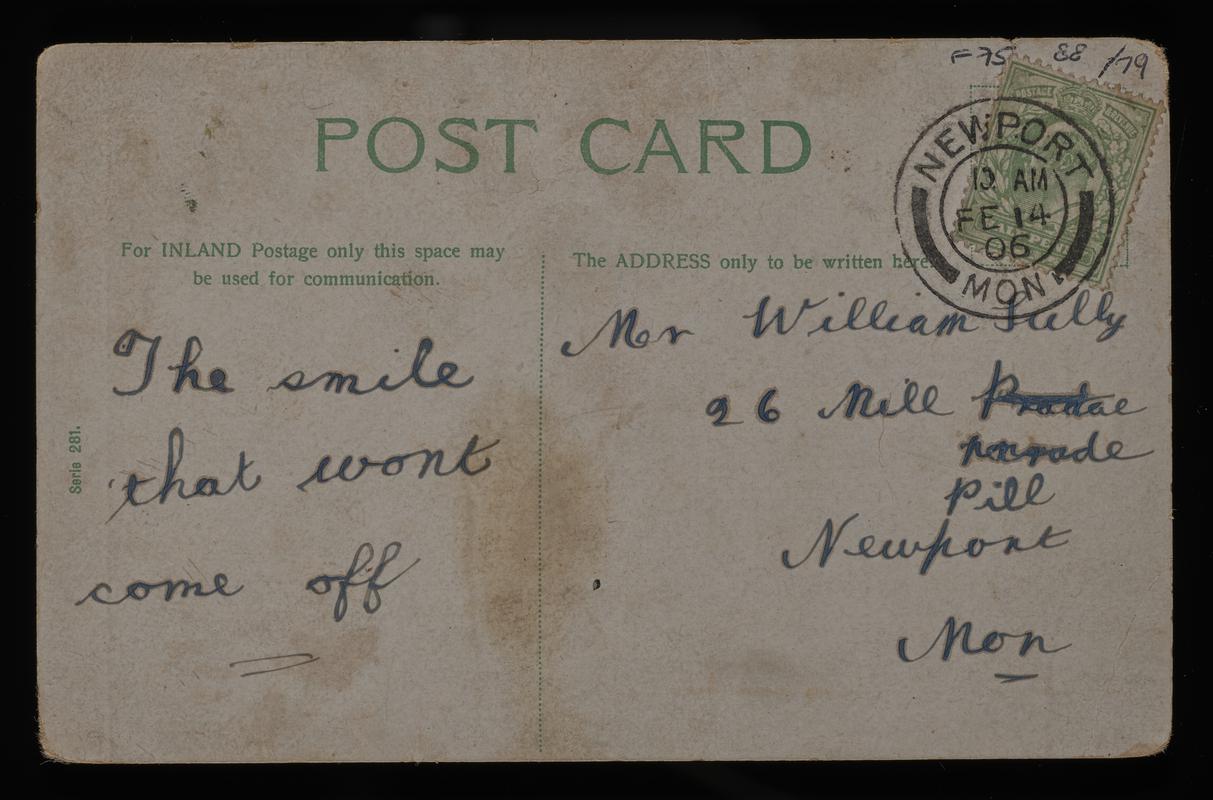 F75 88 /79
POST CARD
NEWPORT
AM
FE 14
06
MON
For INLAND Postage only this space may
be used for communication.
The ADDRESS only to be written here.
The smile
that wont
come off
Serie 281.
Mr William
26 Mill
Pill
Newport
Mon